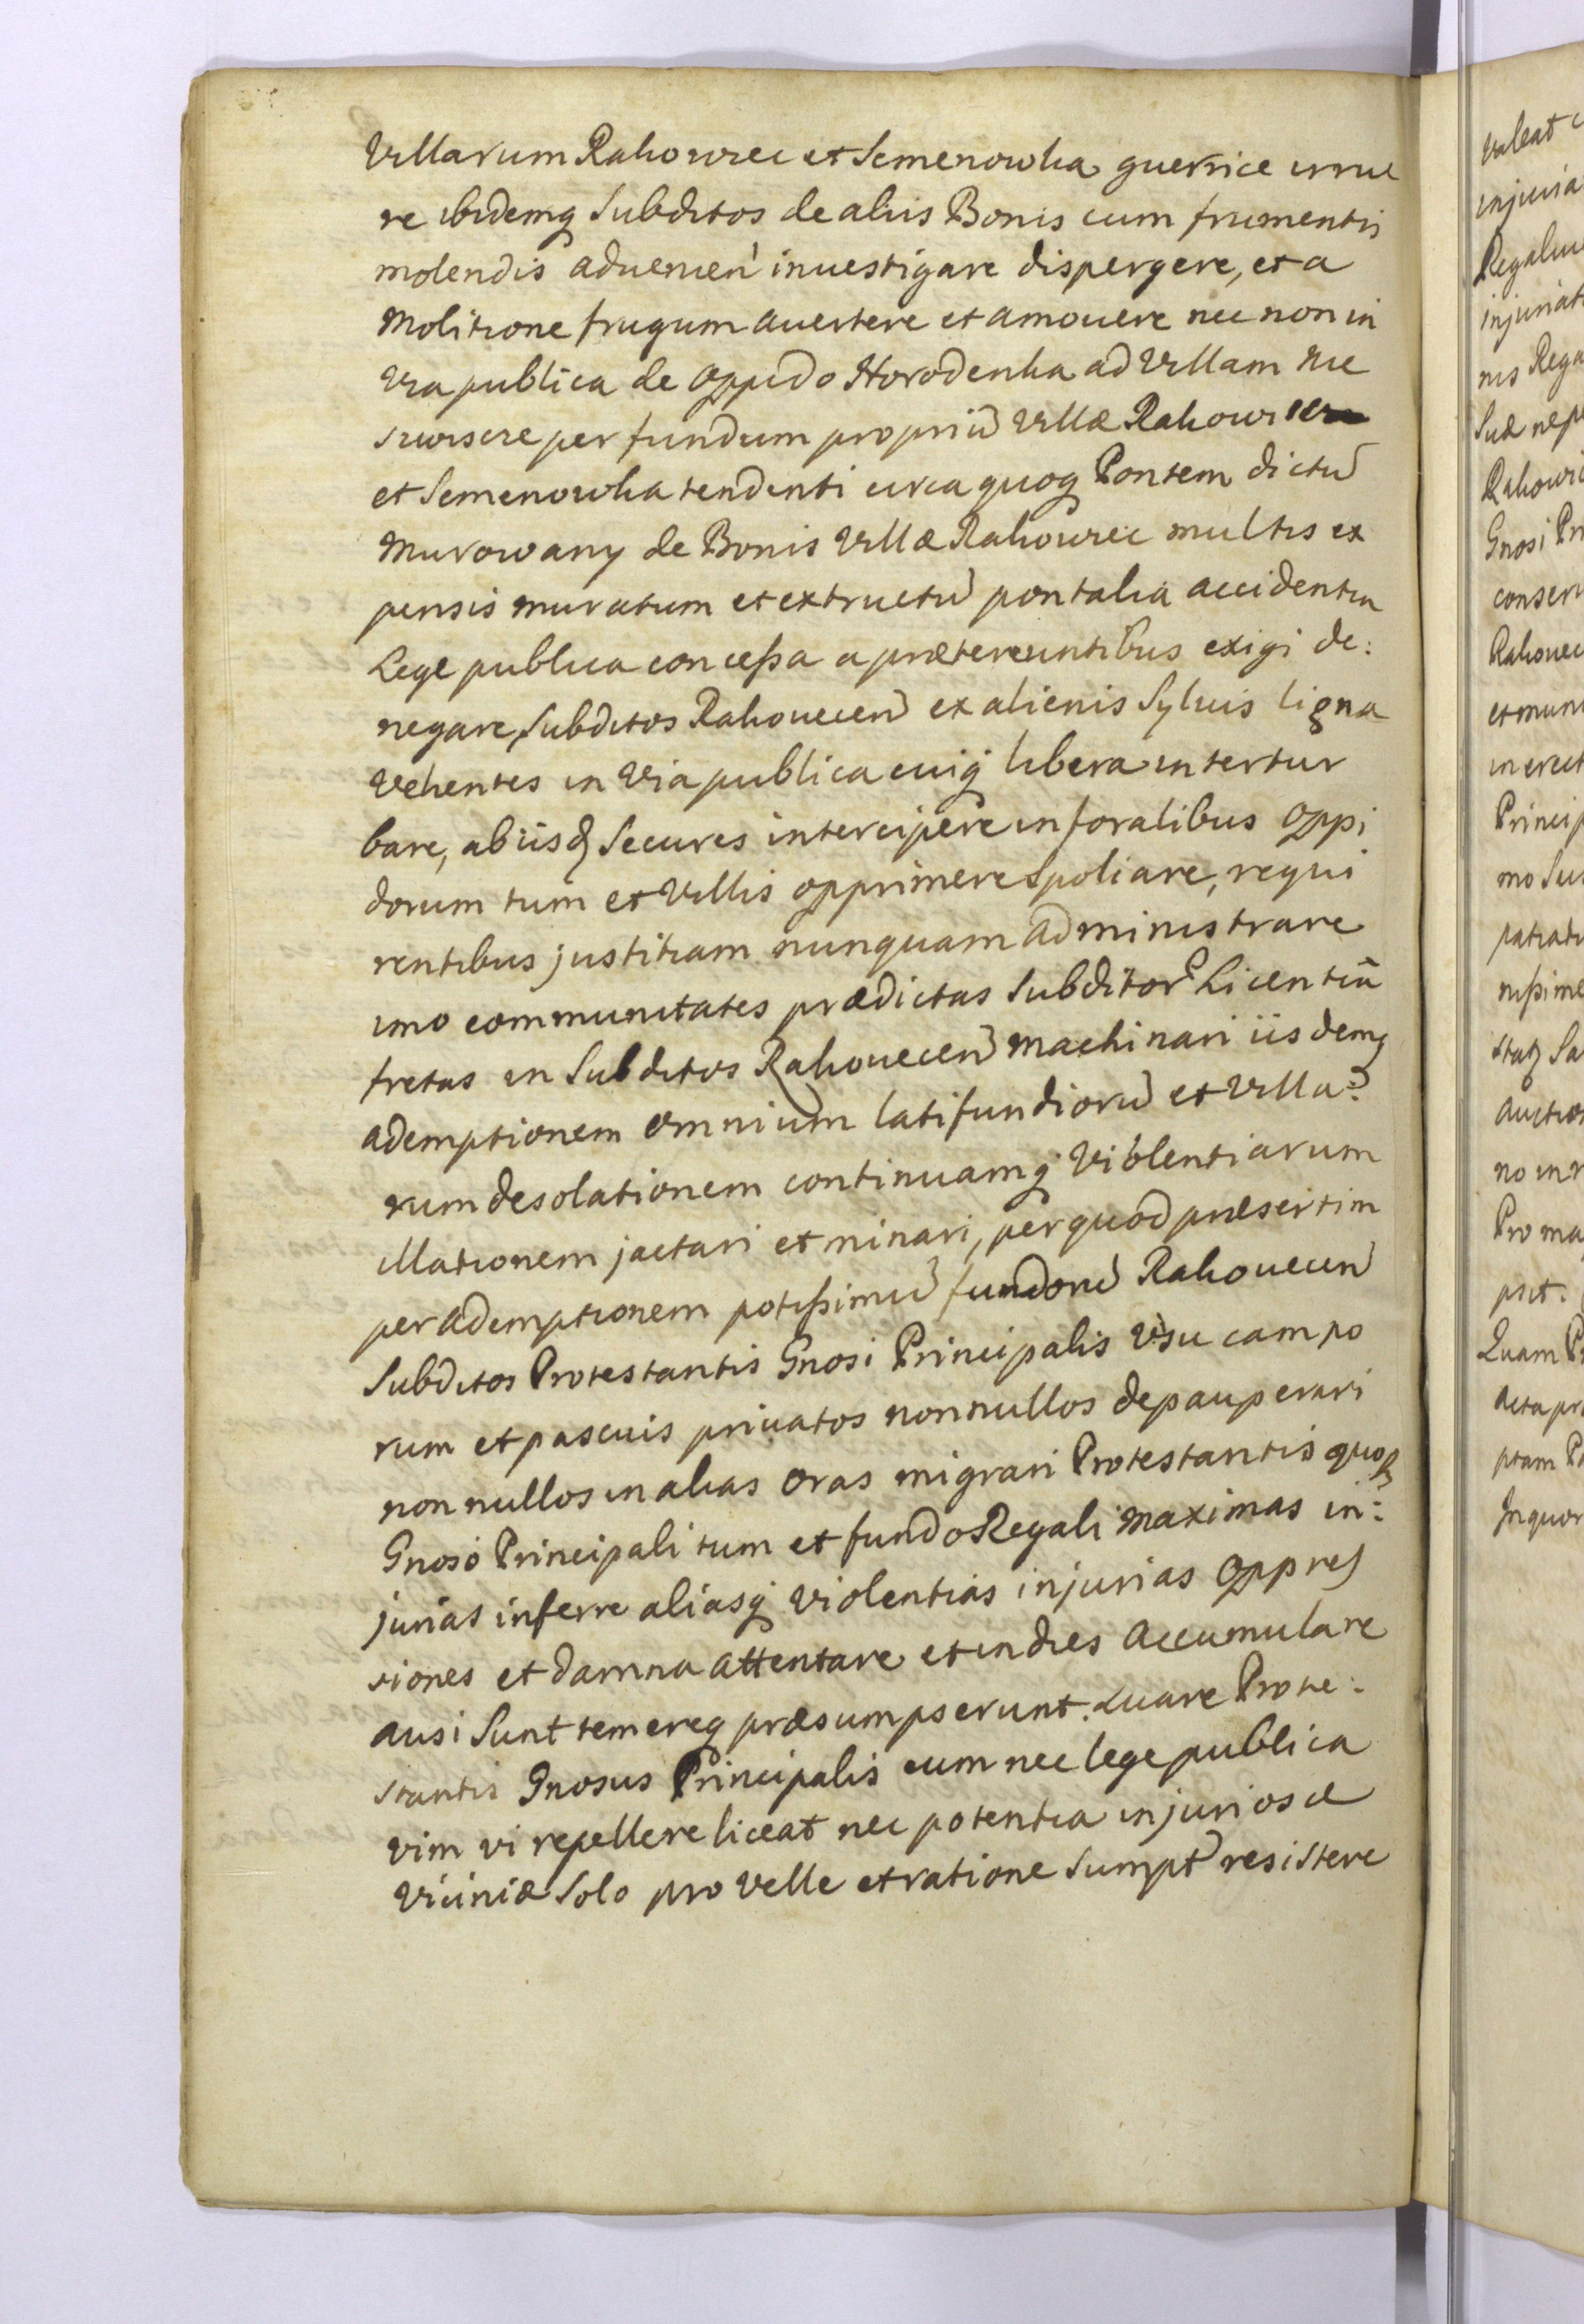 Villarum Rakowiec et Semenowka guerrice irrue
re ibidemq Subditos de aliis Bonis cum frumentis
molendis advenien investigare dispergere, et a
Molitione frugum avertere et amovere nec non in
Via publica de Oppido Horodenka ad Villam Nie
zwiscie per fundum propriū Villæ Rakowiec
et Semenowka tendenti circa quoq Pontem dictū
Murowany de Bonis Villæ Rakowiec multis ex
pensis muratum et extructū pontalia accidentia
Lege publica conceßa a prætereuntibus exigi de:
negare, Subditos Rakoviecen ex alienis Sylvis ligna
Vehentes in Via publica cuiq libera intertur
bare, ab iisq Secures intercipere in foralibus Oppi
dorum tum et Villis opprimere Spoliare, requi
rentibus justitiam nunquam administrare
imo communitates prædictas Subditor Licentiā
fretas in Subditos Rakoviecen machinari iisdemq
ademptionem omnium latifundiorū et Villa:
rum desolationem continuamq Violentiarum
illationem jactari et minari, per quod præsertim
per ademptionem potißimū fundorū Rakoviecen
Subditos Protestantis Gnosi Principalis Usu campo
rum et pascuis privatos nonnullos depauperari
non nullos in alias oras migrari Protestantis quoq
Gnoso Principali tum et fundo Regali maximas in:
jurias inferre aliasq Violentias injurias Oppres
siones et damna attentare et in dies accumulare
ausi Sunt temereq præsumpserunt. Quare Prote:
stantis Gnosus Principalis cum nec lege publica
vim vi repellere liceat nec potentia injuriosæ
Viciniæ Solo pro Velle et ratione Sumpt resistere
valeat
injuria
injuriat
nis Rega
Rakowie
Gnosi Pr
conserv
et muni
Princip
mo Sus
no in
Pro ma
Quam Pr
Acta pr
ptam Pr
In quor